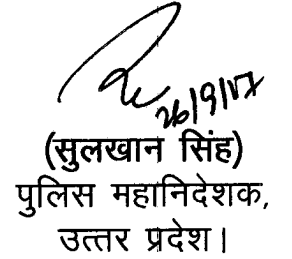 26/9/17
(सुलखान सिंह)
पुलिस महानिदेशक,
उत्तर प्रदेश।